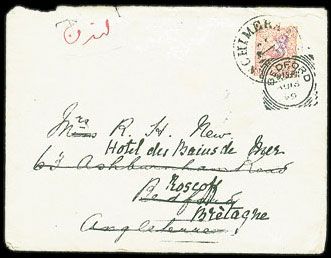 لندن
ACHIMERA
BEDFORD
Mrs R. H. New
Hotel des Bains de Mer
63 Ashburnham Road
Roscoff
Bedford
Bretagne
Angleterre